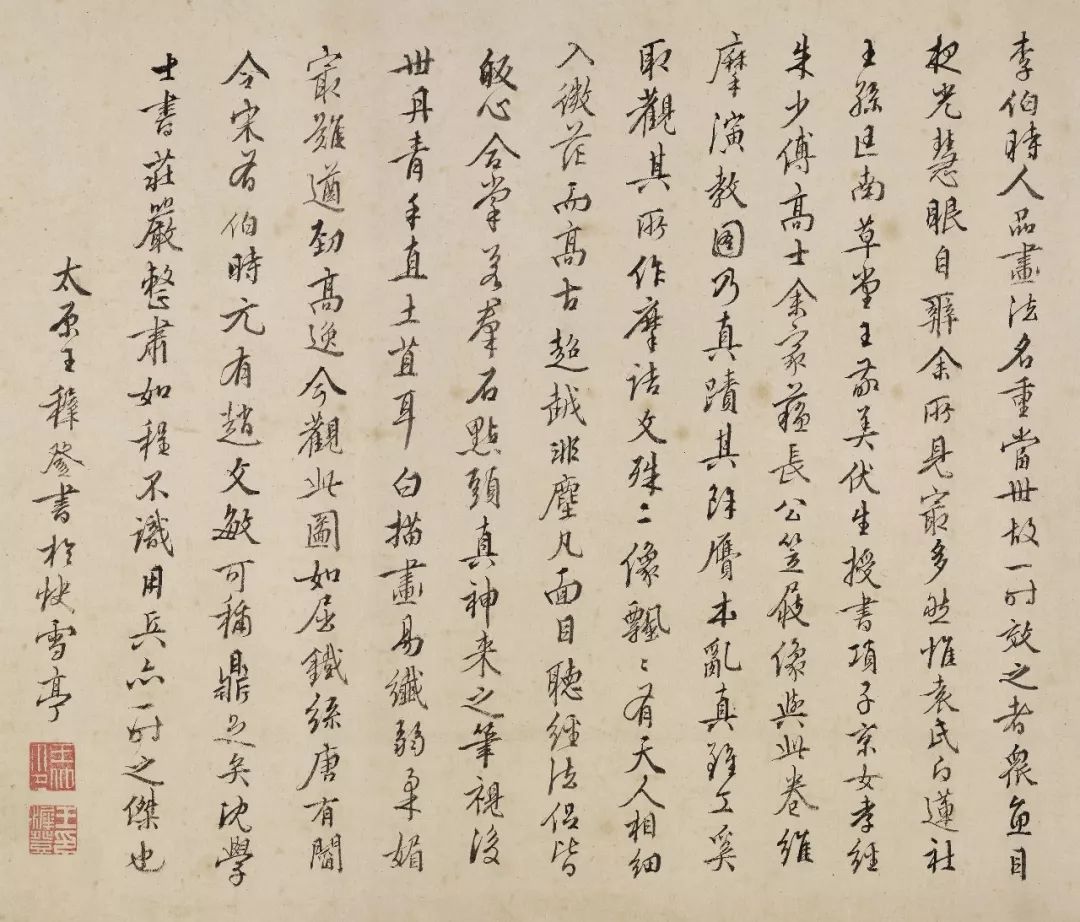 李伯時人品畫法名重當世故一時效之者眾魚目
夜光慧眼自辨余所見最多然惟袁氏白蓮社
王孫匡南草堂王敬美伏生授書項子京女孝經
朱少傅高士余家藏長公笠屐像與此卷維
摩演教圖乃真蹟其餘贋本亂真雖工奚
取觀其所作摩詰文殊二像飄〻有天人相細
入微茫而高古超越非塵凡面目聽經法侶皆
皈心合掌若羣石點頭真神來之筆視後
世丹青手直土苴耳白描畫易纖弱柔媚
最難遒勁高逸今觀此圖如屈鐵絲唐有閻
令宋有伯時元有趙文敏可稱鼎足矣沈學
士書莊嚴整肅如程不識用兵亦一時之傑也
太原王穉登書於快雪亭